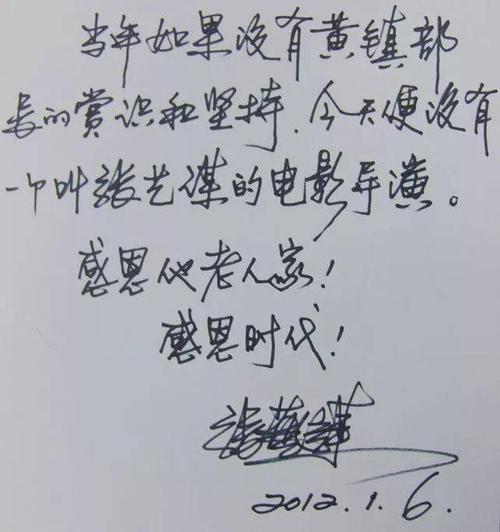 当年如果没有黄镇部
长的赏识和坚持.今天便没有
一个叫张艺谋的电影导演。
感恩他老人家!
感恩时代!
张艺谋
2012.1.6.